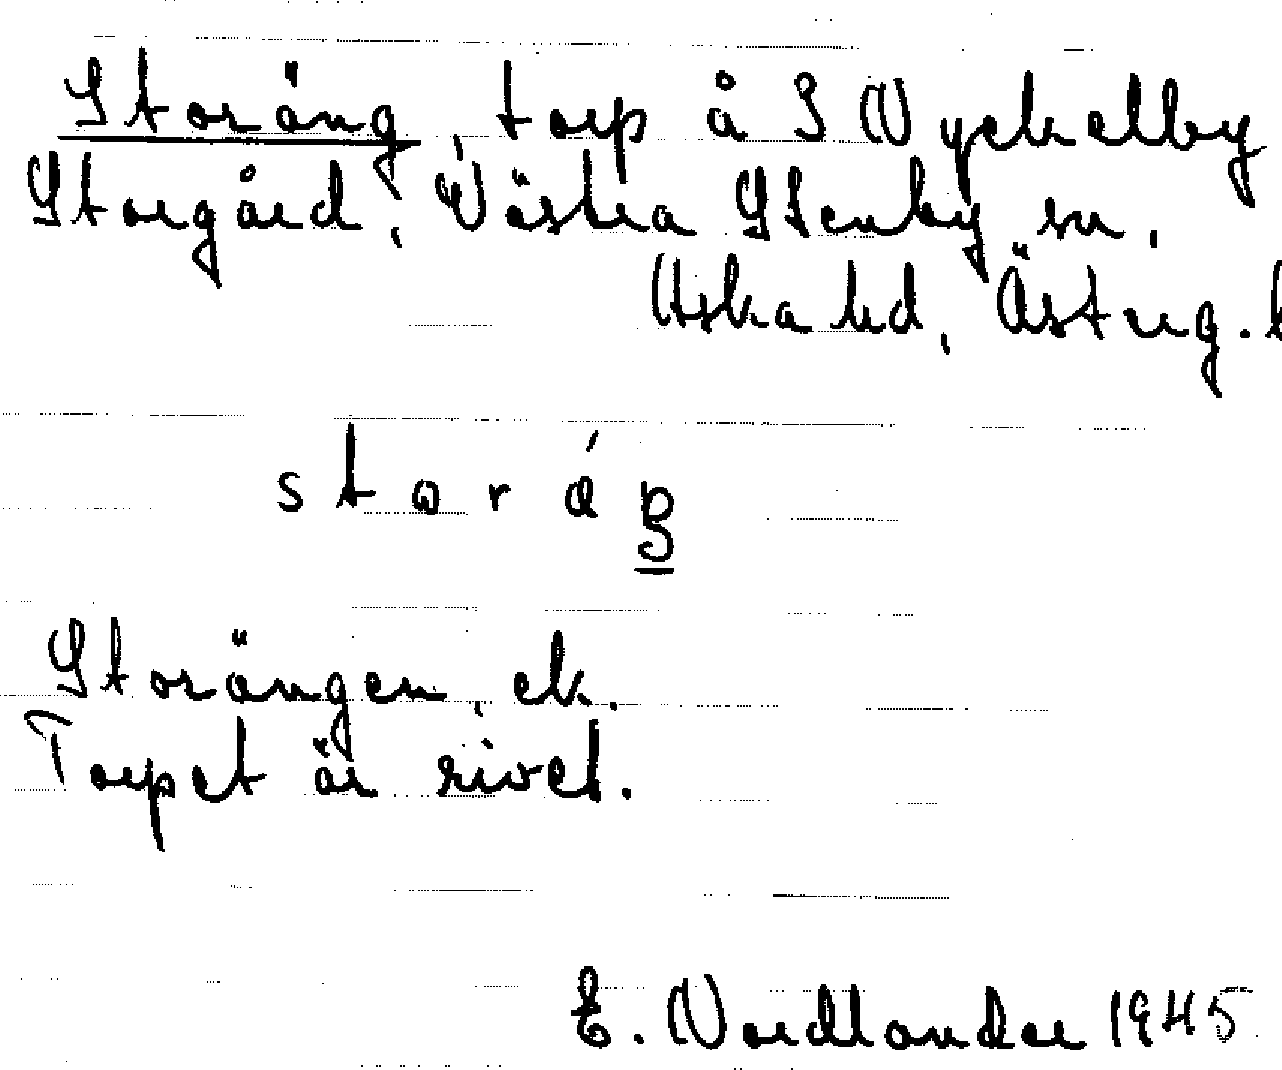 Storäng, torp å S Nyckelby
Storgård, Västra Stenby sn,
Aska hd, Österg. l
Storängen, ek.
Torpet är rivet.
E. Nordlander 1945